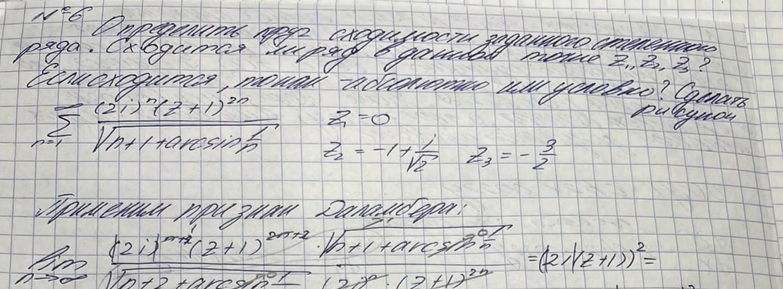 №6 Определить круг сходимости заданного степенного
ряда. Сходится ли ряд в данной точке z₁, z₂, z₃?
Если сходится, то как - абсолютно или условно? Сделать
рисунок
∑_{n=1}^{∞} (2i)ⁿ(z+1)²ⁿ / √(n+1+arcsin 1/n) z₁=0
z₂=-1+i/√2 z₃=-3/2
Применим признак Даламбера:
lim_{n→∞} (2i)ⁿ⁺¹(z+1)²ⁿ⁺² · √(n+1+arcsin 1/n) / √(n+2+arcsin (2i)ⁿ · (z+1)²ⁿ =(2i(z+1))²=